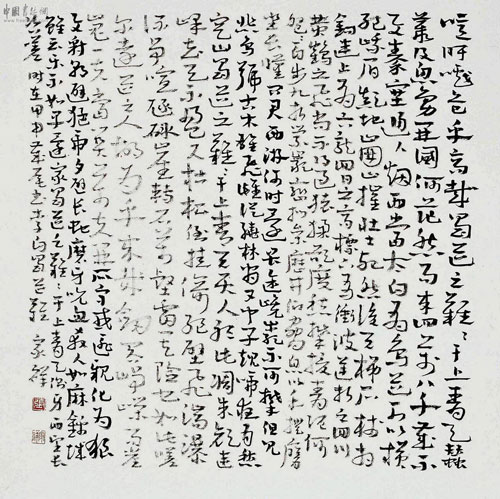 噫吁嚱危乎高哉蜀道之難難于上青天蠶
叢及魚鳧開國何茫然爾來四萬八千歲不
與秦塞通人烟西當太白有鳥道可以橫
絕峨眉巔地崩山摧壯士死然後天梯石棧相
鉤連上有六龍回日之高標下有衝波逆折之回川
黃鶴之飛尚不得過猿猱欲度愁攀援青泥何
盤盤百步九折縈巖巒捫參歷井仰脅息以手撫膺
坐長嘆問君西游何時還畏途巉巖不可攀但見
悲鳥號古木雄飛雌從繞林間又聞子規啼夜月愁
空山蜀道之難難于上青天使人聽此凋朱顏連
峰去天不盈尺枯松倒挂倚絕壁飛湍瀑
流爭喧豗砯崖轉石萬壑雷其險也如此嗟
爾遠道之人胡為乎來哉劍閣崢嶸而崔
嵬一夫當關萬夫莫開所守或匪親化為狼
與豺朝避猛虎夕避長蛇磨牙吮血殺人如麻錦城
雖云樂不如早還家蜀道之難難于上青天側身西望長
咨嗟 時在甲申年 李白蜀道難